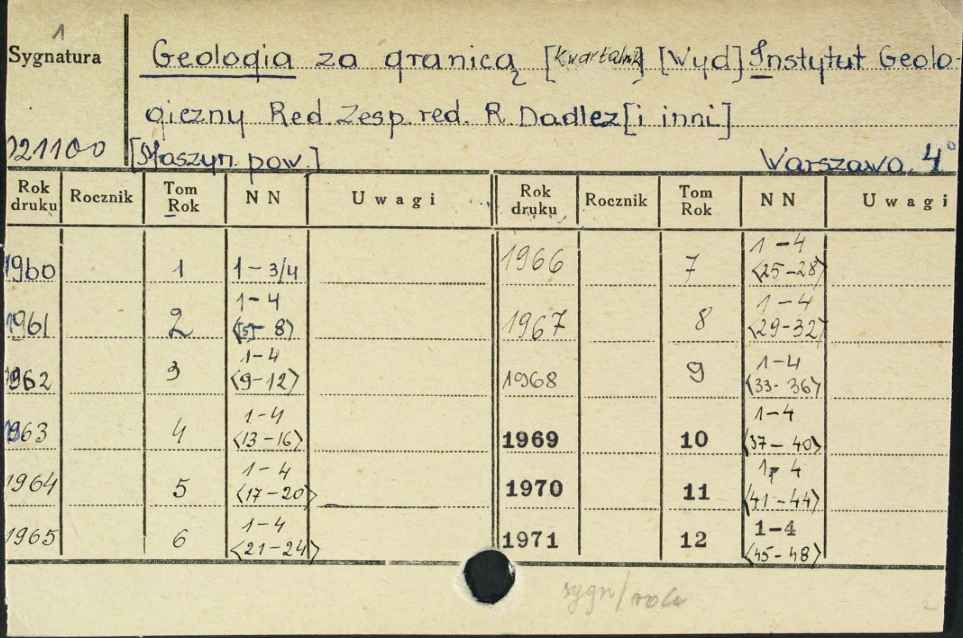 1
Sygnatura
Geologia za granicą [Kwartalnik] [Wyd] Instytut Geolo-
giczny Red. Zesp. red. R. Dadlez [i inni]
021100 [Maszyn. pow.] Warszawa. 4°
Rok druku Rocznik Tom Rok NN Uwagi Rok druku Rocznik Tom Rok NN Uwagi
1960 1 1-3/4 1966 7 1-4 <25-28>
1961 2 1-4 <5-8> 1967 8 1-4 <29-32>
1962 3 1-4 <9-12> 1968 9 1-4 <33-36>
1963 4 1-4 <13-16> 1969 10 1-4 <37-40>
1964 5 1-4 <17-20> 1970 11 1-4 <41-44>
1965 6 1-4 <21-24> 1971 12 1-4 <45-48>
sygn/rok